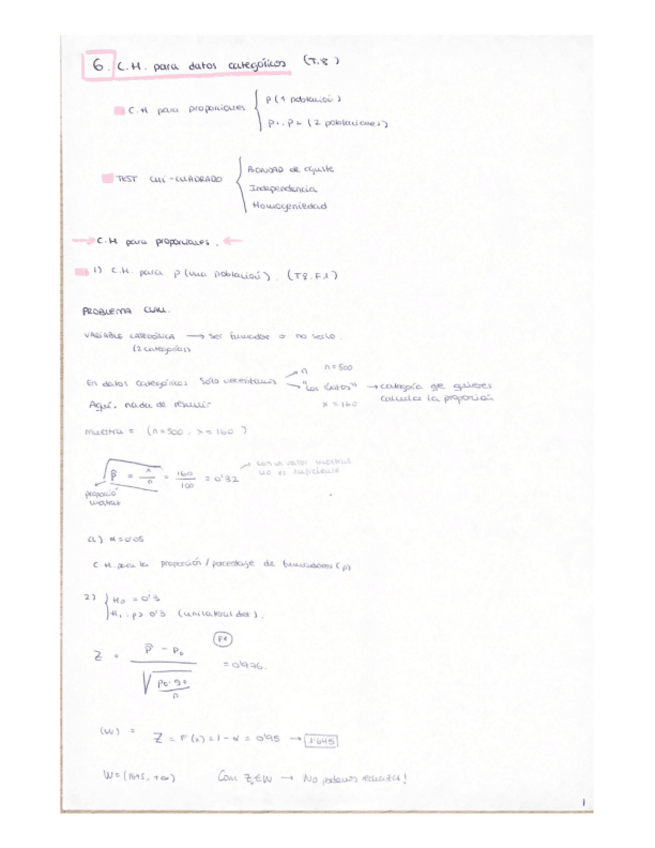 6. C.H. para datos categóricos (T.8)
C.H para proporciones { p (1 población)
P1-P2 (2 poblaciones)
TEST CHI-CUADRADO { BONDAD DE ajuste
Independencia
Homogeniedad
→ C.H. para proporciones. ←
1) C.H. para p (una población). (T8.F1)
PROBLEMA CLAU.
VARIABLE CATEGÓRICA → ser fumador o no serlo.
(2 categorías)
En datos categóricos solo necesitamos → n n=500
→ "los éxitos" → categoría que quieres
calcula la proporción
Aquí, nada de x=160
muestra = (n=500, x=160)
p̂ = x/n = 160/100 = 0'32 → con un valor muestral
no es suficiente
proporció
mostral
a) α=0'05
C.H. para la proporción/porcentaje de fumadores (p)
2) { H0 = 0'3
H1: p> 0'3 (unilateral der).
Z = p̂ - p0 / √ p0·q0 / n (F1) = 0'976.
(W) = Z = F(x) = 1-α = 0'95 → 1'645
W=(1'645, +∞) Com Z∉W → No podemos rechazar!
1